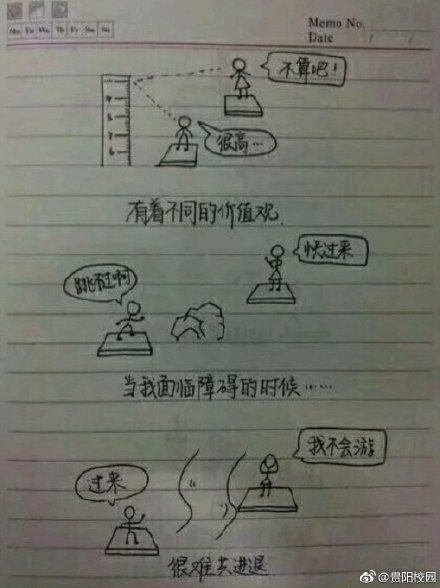 Memo No.
Mo Tu We Th Fr Sa Su
Date / /
不算吧!
很高…
有着不同的价值观
快过来
跳不过啊
当我面临障碍的时候……
我不会游
过来
很难共进退
@贵阳校园